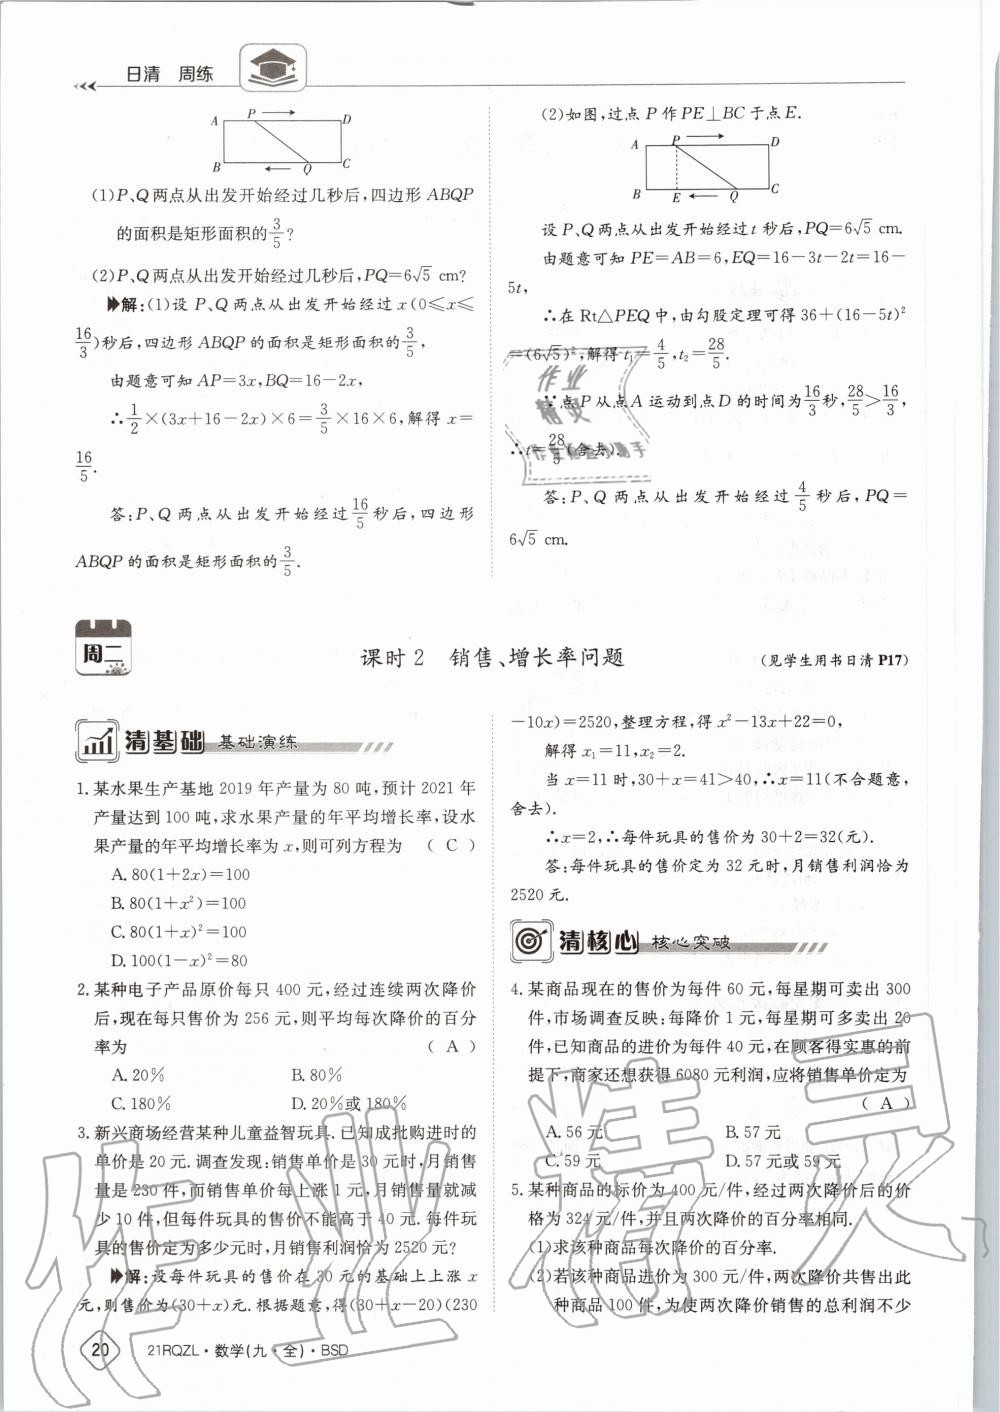 日清 周练
A P D
B Q C
(1)P、Q两点从出发开始经过几秒后,四边形 ABQP
的面积是矩形面积的3/5?
(2)P、Q两点从出发开始经过几秒后,PQ=6√5 cm?
解:(1)设 P、Q 两点从出发开始经过 x(0≤x≤
16/3)秒后,四边形 ABQP 的面积是矩形面积的3/5,
由题意可知 AP=3x,BQ=16-2x,
∴1/2×(3x+16-2x)×6=3/5×16×6,解得 x=
16/5.
答:P、Q 两点从出发开始经过16/5秒后,四边形
ABQP 的面积是矩形面积的3/5.
(2)如图,过点 P 作 PE⊥BC 于点 E.
A P D
B E Q C
设 P、Q 两点从出发开始经过 t 秒后,PQ=6√5 cm.
由题意可知 PE=AB=6,EQ=16-3t-2t=16-
5t,
∴在 Rt△PEQ 中,由勾股定理可得 36+(16-5t)²
=(6√5)²,解得 t₁=4/5,t₂=28/5.
∵点 P 从点 A 运动到点 D 的时间为16/3秒,28/5>16/3,
∴t=28/5(舍去).
答:P、Q 两点从出发开始经过4/5秒后,PQ=
6√5 cm.
周二
课时2 销售、增长率问题
(见学生用书日清 P17)
清基础 基础演练
1.某水果生产基地 2019 年产量为 80 吨,预计 2021 年
产量达到 100 吨,求水果产量的年平均增长率,设水
果产量的年平均增长率为 x,则可列方程为 ( C )
A.80(1+2x)=100
B.80(1+x²)=100
C.80(1+x)²=100
D.100(1-x)²=80
2.某种电子产品原价每只 400 元,经过连续两次降价
后,现在每只售价为 256 元,则平均每次降价的百分
率为 ( A )
A.20% B.80%
C.180% D.20%或180%
3.新兴商场经营某种儿童益智玩具.已知成批购进时的
单价是 20 元.调查发现:销售单价是 30 元时,月销售
量是 230 件,而销售单价每上涨 1 元,月销售量就减
少 10 件,但每件玩具的售价不能高于 40 元.每件玩
具的售价定为多少元时,月销售利润恰为 2520 元?
解:设每件玩具的售价在 30 元的基础上上涨 x
元,则售价为(30+x)元.根据题意,得(30+x-20)(230
-10x)=2520,整理方程,得 x²-13x+22=0,
解得 x₁=11,x₂=2.
当 x=11 时,30+x=41>40,∴x=11(不合题意,
舍去).
∴x=2,∴每件玩具的售价为 30+2=32(元).
答:每件玩具的售价定为 32 元时,月销售利润恰为
2520 元.
清核心 核心突破
4.某商品现在的售价为每件 60 元,每星期可卖出 300
件,市场调查反映:每降价 1 元,每星期可多卖出 20
件,已知商品的进价为每件 40 元,在顾客得实惠的前
提下,商家还想获得 6080 元利润,应将销售单价定为
( A )
A.56 元 B.57 元
C.59 元 D.57 元或 59 元
5.某种商品的标价为 400 元/件,经过两次降价后的价
格为 324 元/件,并且两次降价的百分率相同.
(1)求该种商品每次降价的百分率.
(2)若该种商品进价为 300 元/件,两次降价共售出此
种商品 100 件,为使两次降价销售的总利润不少
20 21RQZL·数学(九·全)·BSD
作业精灵